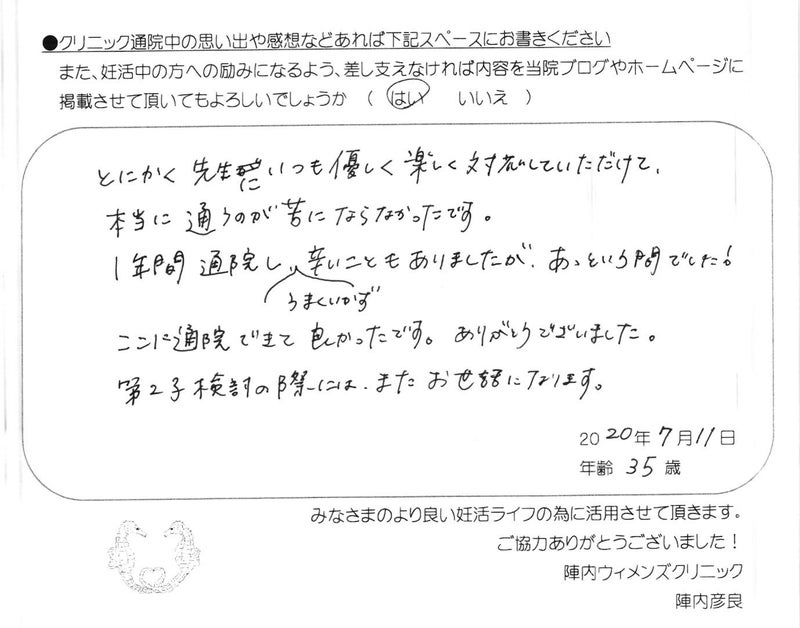 ●クリニック通院中の思い出や感想などあれば下記スペースにお書きください
また、妊活中の方への励みになるよう、差し支えなければ内容を当院ブログやホームページに
掲載させて頂いてもよろしいでしょうか （ はい いいえ ）
とにかく 先生に いつも 優しく 楽しく 対応していただけて、
本当に 通うのが 苦に ならなかったです。
1年間 通院し、辛いことも ありましたが、あっという間でした!
うまくいかず
ここに通院できて 良かったです。 ありがとうございました。
第2子検討の際には、また お世話になります。
2020年7月11日
年齢 35歳
みなさまのより良い妊活ライフの為に活用させて頂きます。
ご協力ありがとうございました！
陣内ウィメンズクリニック
陣内彦良